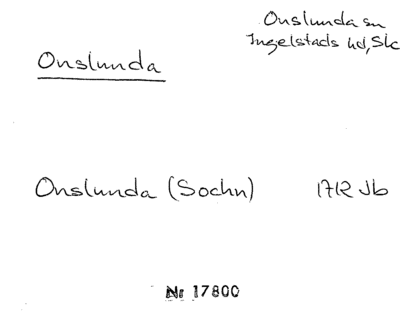 Onslunda sn
Ingelstads hd, Sk
Onslunda
Onslunda (Sochn) 1712 Jb
Nr 17800